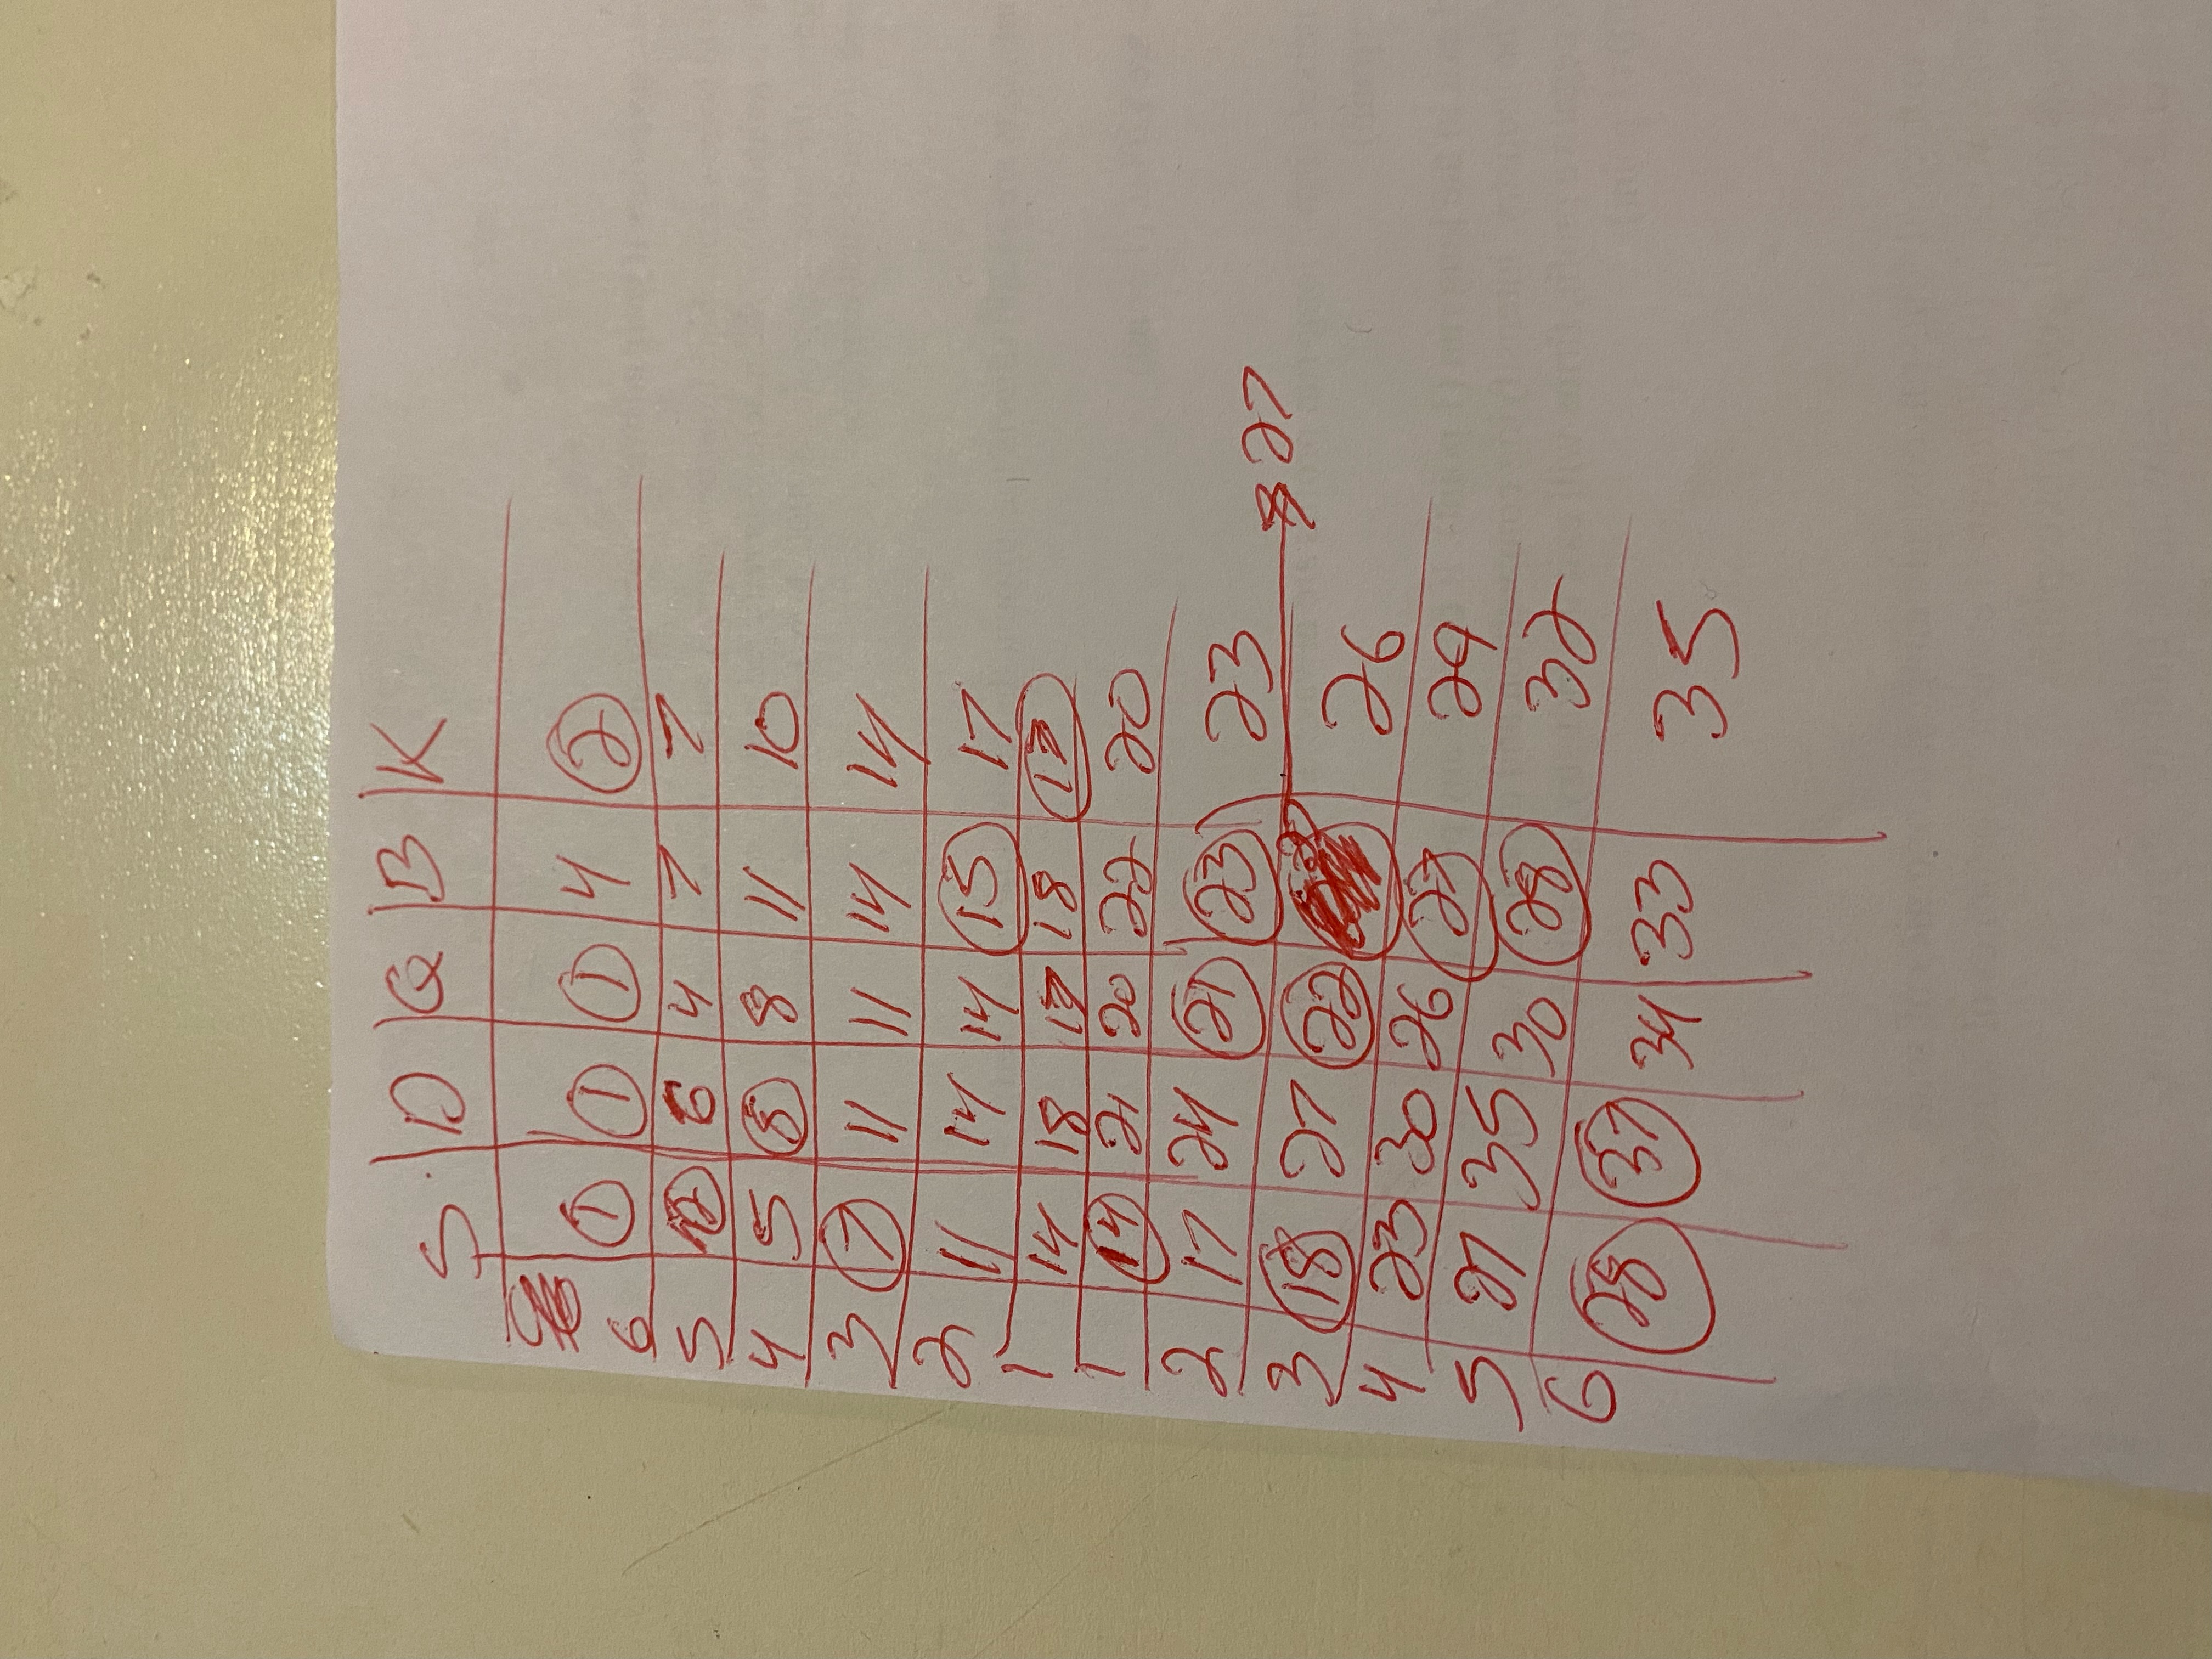 S D Q B K
6 1 1 1 4 2
5 2 6 4 7 7
4 5 8 8 11 10
3 7 11 11 14 14
2 11 14 14 15 17
1 14 18 17 18 17
1 14 21 20 22 20
2 17 24 21 23 23
3 18 27 22 26 27
4 23 30 26 27 29
5 27 35 30 28 32
6 28 37 34 33 35